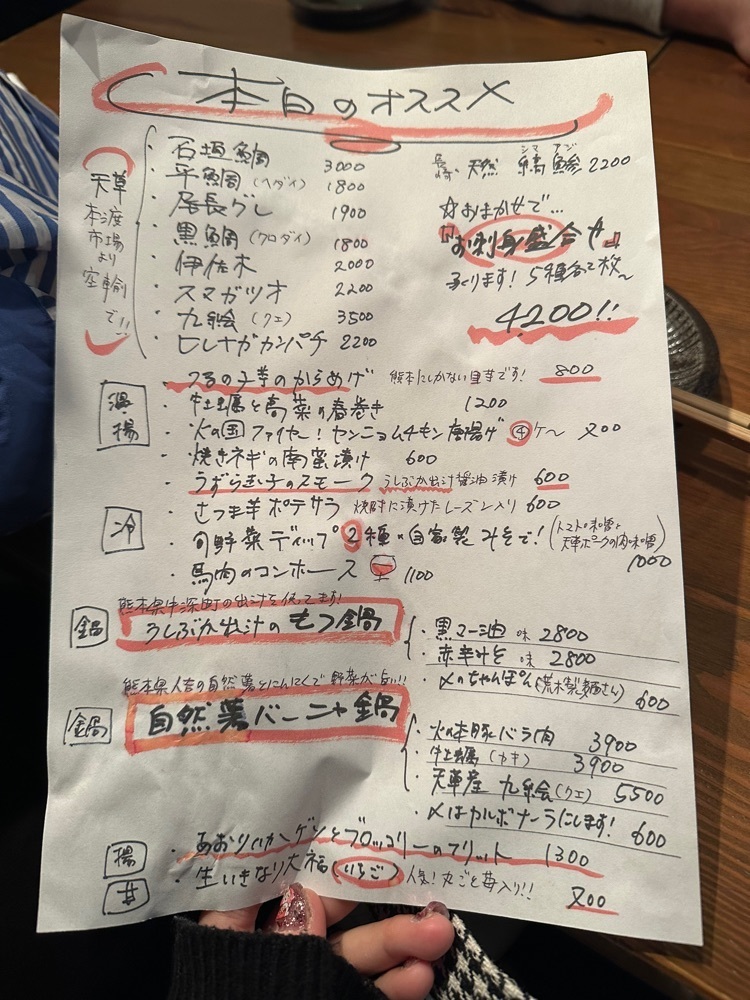 本日のオススメ
天草
本渡
市場
より
空輸
で!!
・石垣鯛 3000
・平鯛(ヘダイ) 1800
・尾長グレ 1900
・黒鯛(クロダイ) 1800
・伊佐木 2000
・スマガツオ 2200
・九絵(クエ) 3500
・ヒレナガカンパチ 2200
長崎 天然 縞鯵 2200
シマ アジ
☆おまかせで…
『お刺身盛合せ』
承ります! 5種各2枚〜
4200!!
温・揚
・つるの子芋のからあげ 熊本にしかない里芋です! 800
・牡蠣と高菜の春巻き 1200
・火の国ファイヤー!センニョムチキン唐揚げ ④ケ〜 700
・焼きネギの南蛮漬け 600
・うずら玉子のスモーク うしぶか出汁醤油漬け 600
冷
・さつま芋ポテサラ 焼酎に漬けたレーズン入り 600
・旬野菜ディップ 2種×自家製みそで!(トマト味噌と天草ポークの肉味噌) 1000
・馬肉のコンボース 1100
熊本県牛深町の出汁を使ってます!
鍋
うしぶか出汁のもつ鍋
・黒マー油味 2800
・赤辛みそ味 2800
・〆のちゃんぽん(荒木製麺さん) 600
熊本県人吉の自然薯とにんにくで野菜が旨い!!
鍋
自然薯バーニャ鍋
・火の本豚バラ肉 3900
・牡蠣(カキ) 3900
・天草産 九絵(クエ) 5500
・〆はカルボナーラにします! 600
揚
・あおりいかゲソとブロッコリーのフリット 1300
甘
・生いきなり大福(いちご)人気!丸ごと苺入り!! 700